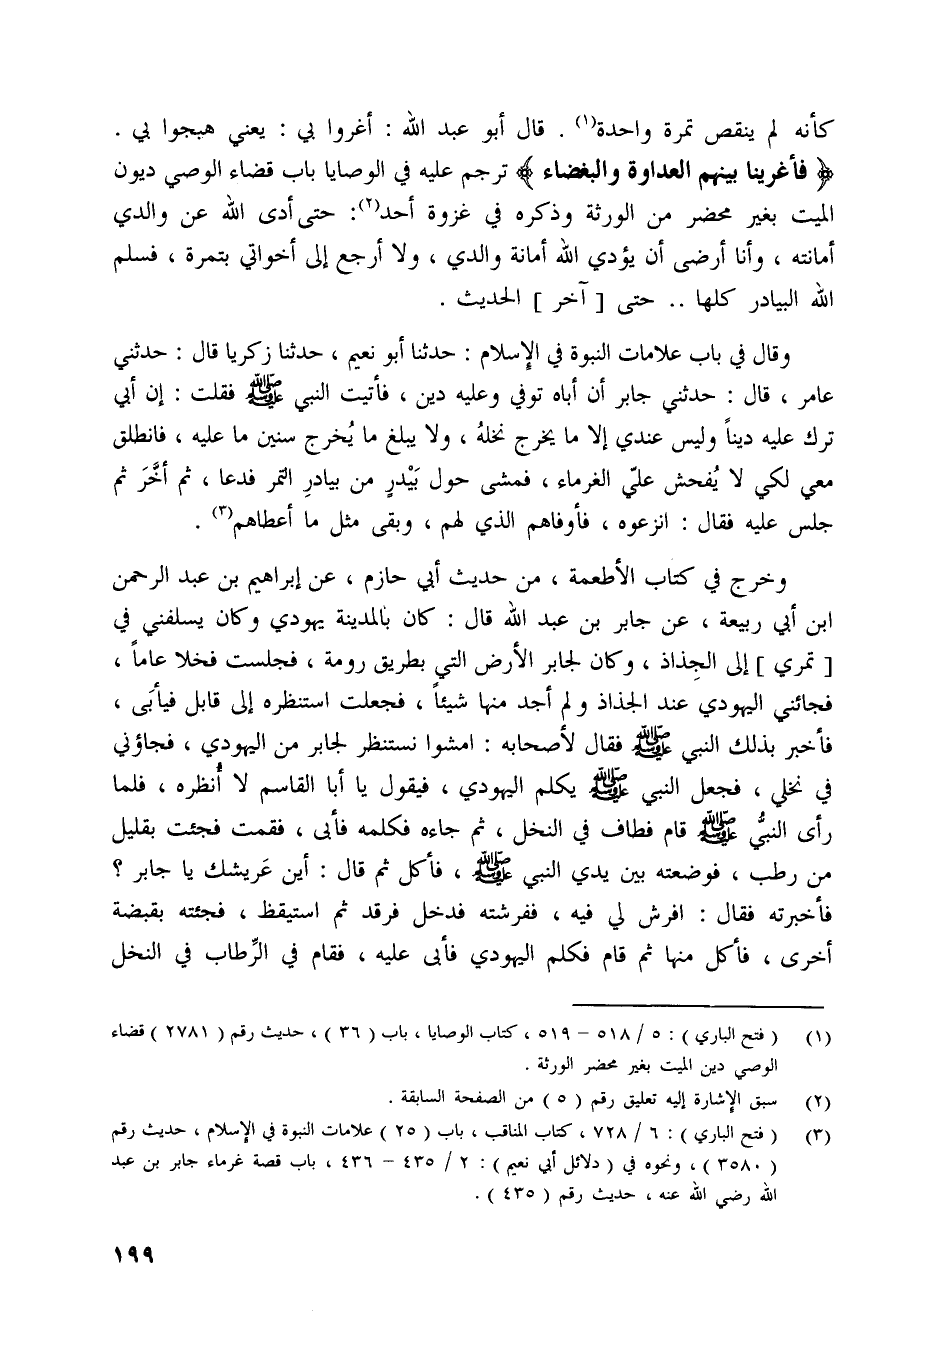 كأنه لم ينقص تمرة واحدة(١) . قال أبو عبد الله : أغروا بي : يعني هيجوا بي .
﴿ فأغرينا بينهم العداوة والبغضاء ﴾ ترجم عليه في الوصايا باب قضاء الوصي ديون
الميت بغير محضر من الورثة وذكره في غزوة أحد(٢): حتى أدى الله عن والدي
أمانته ، وأنا أرضى أن يؤدي الله أمانة والدي ، ولا أرجع إلى أخواتي بتمرة ، فسلم
الله البيادر كلها .. حتى [ آخر ] الحديث .
وقال في باب علامات النبوة في الإسلام : حدثنا أبو نعيم ، حدثنا زكريا قال : حدثني
عامر ، قال : حدثني جابر أن أباه توفي وعليه دين ، فأتيت النبي ﷺ فقلت : إن أبي
ترك عليه ديناً وليس عندي إلا ما يخرج نخلهُ ، ولا يبلغ ما يُخرج سنين ما عليه ، فانطلق
معي لكي لا يُفحش عليّ الغرماء ، فمشى حول بَيْدرٍ من بيادرِ التمر فدعا ، ثم أخَّرَ ثم
جلس عليه فقال : انزعوه ، فأوفاهم الذي لهم ، وبقى مثل ما أعطاهم(٣) .
وخرج في كتاب الأطعمة ، من حديث أبي حازم ، عن إبراهيم بن عبد الرحمن
ابن أبي ربيعة ، عن جابر بن عبد الله قال : كان بالمدينة يهودي وكان يسلفني في
[ تمري ] إلى الجِذاذ ، وكان لجابر الأرض التي بطريق رومة ، فجلست فخلا عاماً ،
فجائني اليهودي عند الجذاذ و لم أجد منها شيئاً ، فجعلت استنظره إلى قابل فيأبَى ،
فأخبر بذلك النبي ﷺ فقال لأصحابه : امشوا نستنظر لجابر من اليهودي ، فجاؤني
في نخلي ، فجعل النبي ﷺ يكلم اليهودي ، فيقول يا أبا القاسم لا أُنظره ، فلما
رأى النبيُّ ﷺ قام فطاف في النخل ، ثم جاءه فكلمه فأبى ، فقمت فجئت بقليل
من رطب ، فوضعته بين يدي النبي ﷺ ، فأكل ثم قال : أين عَريشك يا جابر ؟
فأخبرته فقال : افرش لي فيه ، ففرشته فدخل فرقد ثم استيقظ ، فجئته بقبضة
أخرى ، فأكل منها ثم قام فكلم اليهودي فأبى عليه ، فقام في الرِّطاب في النخل
(١) ( فتح الباري ) : ٥ / ٥١٨ – ٥١٩ ، كتاب الوصايا ، باب ( ٣٦ ) ، حديث رقم ( ٢٧٨١ ) قضاء
الوصي دين الميت بغير محضر الورثة .
(٢) سبق الإشارة إليه تعليق رقم ( ٥ ) من الصفحة السابقة .
(٣) ( فتح الباري ) : ٦ / ٧٢٨ ، كتاب المناقب ، باب ( ٢٥ ) علامات النبوة في الإسلام ، حديث رقم
( ٣٥٨٠ ) ، ونحوه في ( دلائل أبي نعيم ) : ٢ / ٤٣٥ – ٤٣٦ ، باب قصة غرماء جابر بن عبد
الله رضي الله عنه ، حديث رقم ( ٤٣٥ ) .
١٩٩